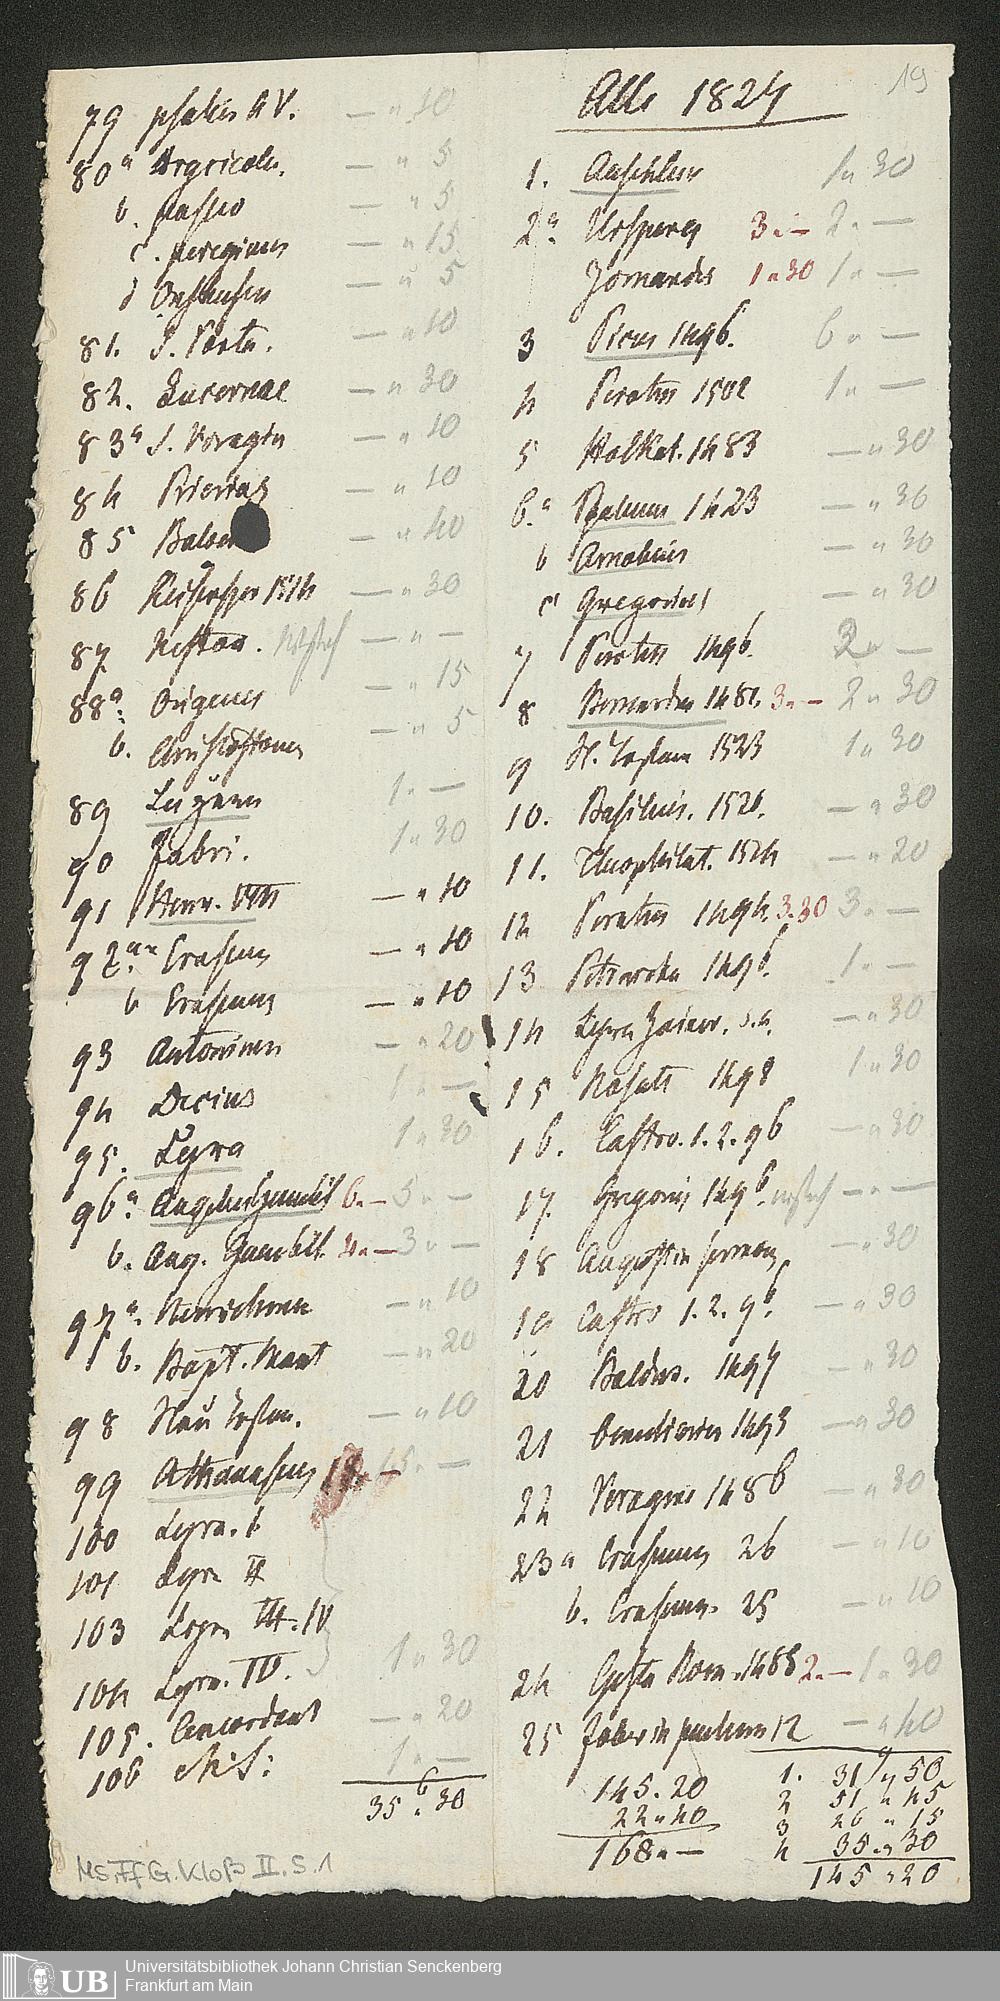 79 psalter A V. — " 10
80 a Argricola. — " 5
b. passio — " 5
c. peregrinus — " 15
d — " 5
81. J. Porta. — " 10
82. Lucernae — " 30
83 a J. Voragin — " 10
84 Prierias — " 10
85 — " 40
86 1514 — " 30
87 — " —
88 a. Origenes — " 15
b. — " 5
89 1 " —
90 Fabri. 1 " 30
91 Henr. VIII — " 10
92 a. Erasmus — " 10
b Erasmus — " 10
93 Antoninus — " 20
94 Decius 1 " —
95. Lyra 1 " 30
96 a. 6. — 5 " —
b. Ang. — 3 " —
97 a. — " 10
b. Bapt. Mant — " 20
98 Neu Testam. — " 10
99 Athanasius 18. — 15 " —
100 Lyra. I.
101 Lyra II
103 Lyra III. IV
104 Lyra. IV. 1 " 30
105. Concordant — " 20
106 Ms: 1 " —
35 " 30
Ms. Ff. G. Kloß II. 5. 1
19
Alb 1824
1. Aeschlus 1 " 30
2 a. Ursperg 3 " — 2 " —
Jornandes 1 " 30 1 " —
3 Picus 1496. 6 " —
4 Perottus 1502 1 " —
5 1483 — " 30
6. a — " 30
b Arnobius — " 30
c Gregorius — " 30
7 Perottus 1496. 2 " —
8 Bernardus 1481. 3 " — 2 " 30
9 N. Testam 1523 1 " 30
10. Basilius. 1520. — " 30
11. Theophilat. 1524 — " 20
12 Perottus 1494. 3. 30 3 " —
13 Petrarcha 1496. 1 " —
14 Lyra Zainer. s. a. — " 30
15 1498 1 " 30
16. Castro. 1. 2. 96 — " 30
17. Gregorius 1496. — " —
18 Augustin sermon — " 30
19 Castro 1. 2. 96. — " 30
20 Baldus. 1497 — " 30
21 1493 — " 30
22 Voragine 1486 — " 30
23 a Erasmus 26 — " 10
b. Erasmus. 25 — " 10
24 Gesta Rom. 1488 2 " — 1 " 30
25 Faber in paulum 12 — " 40
145. 20
22 " 40
168 " —
1. 31 " 50
2 51 " 45
3 26 " 15
4 35 " 30
145 " 20
UB
Universitätsbibliothek Johann Christian Senckenberg
Frankfurt am Main